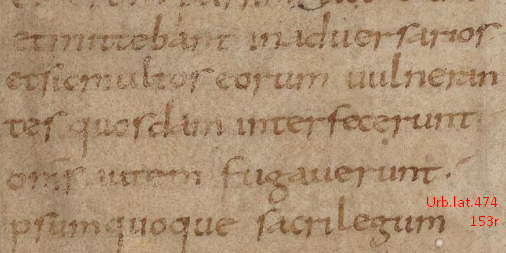 etmittebant inaduersarios
etsicmultos eorum uulneran
tes quosdam interfecerunt
om̅s uitem fugauerunt.
psumquoque sacrilegum
Urb.lat.474
153r